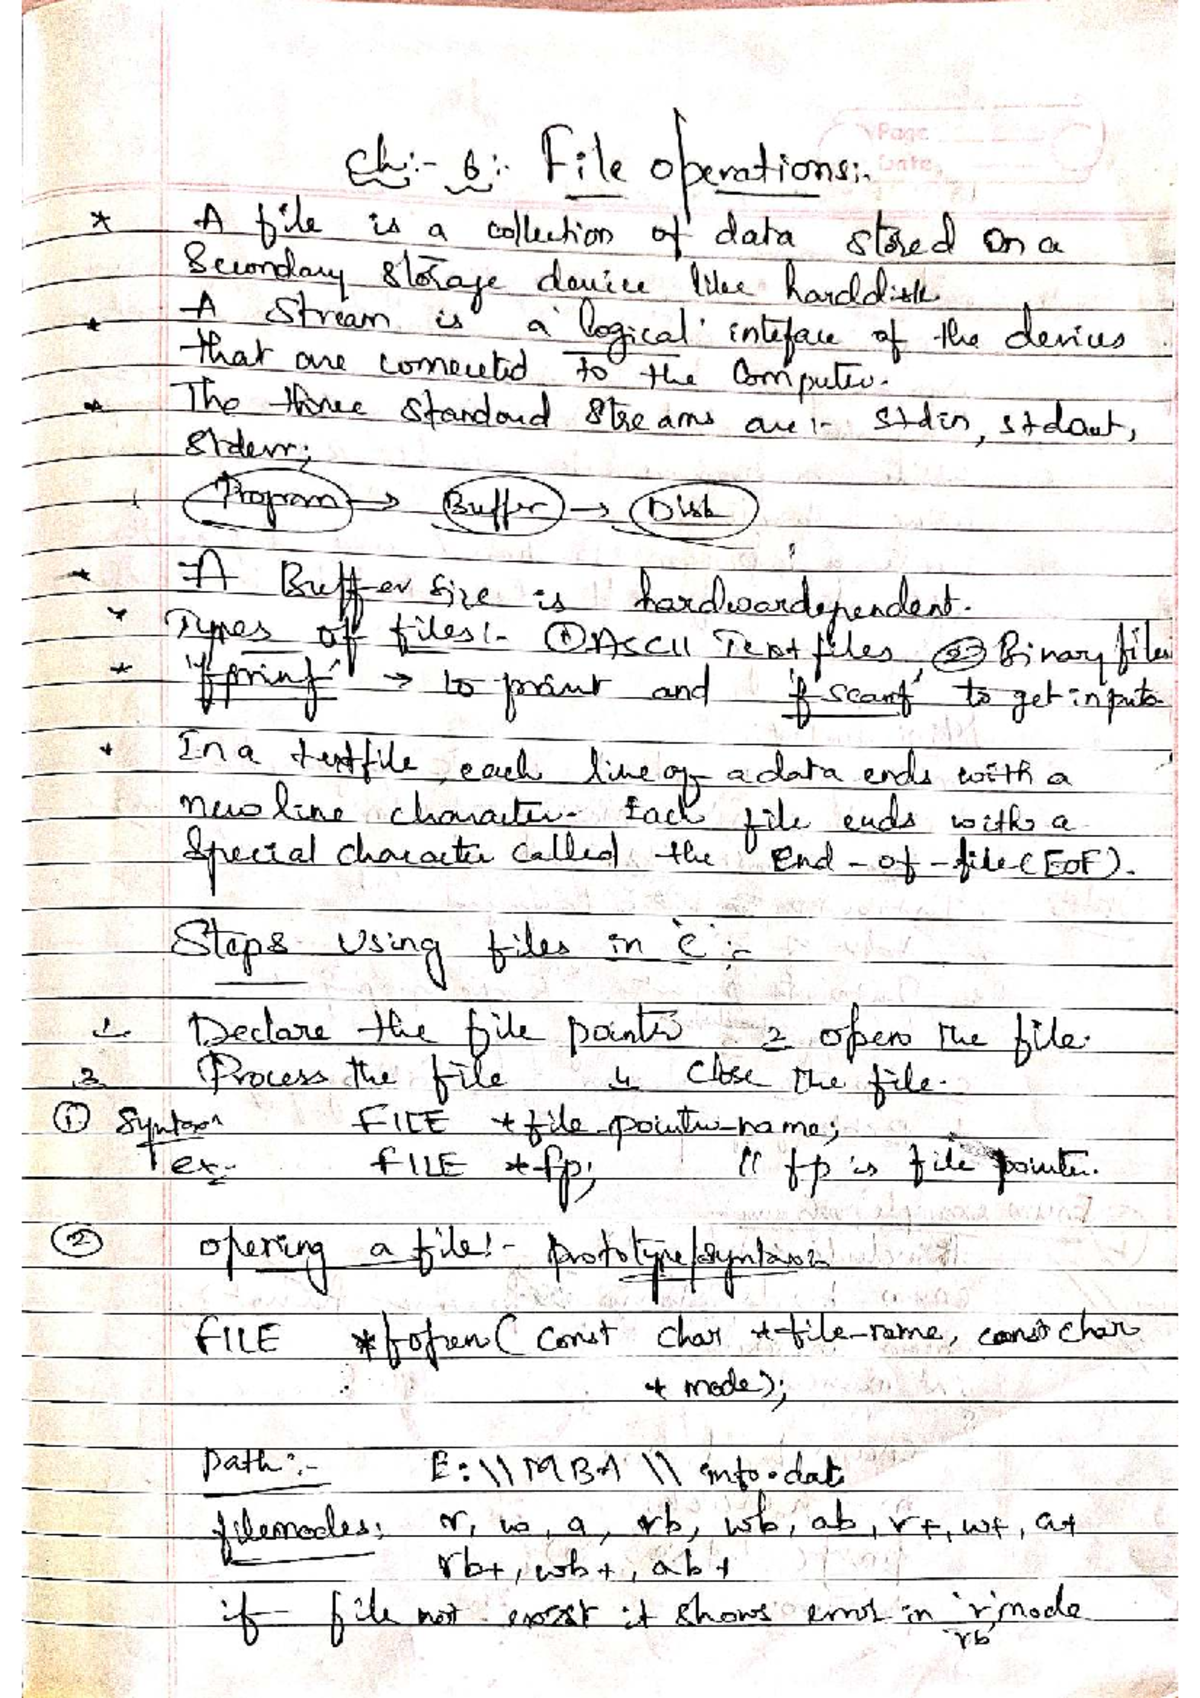 Page
Date
Ch:- 6:- File operations:-
* A file is a collection of data stored on a
Secondary storage device like harddisk
* A Stream is a 'logical' inteface of the devices
that are connected to the Computer.
* The three standard Streams are:- stdin, stdout,
stderr;
Program → Buffer → Disk
* A Buffer size is hardwardependent.
* Types of files:- ① ASCII Text files, ② Binary files
* 'fprinf' → to print and 'fscanf' to get inputs
* In a textfile, each line of a data ends with a
new line character. Each file ends with a
Special character called the End-of-file (EOF).
Steps Using files in 'C' :-
1. Declare the file pointer 2 open the file.
3. Process the file 4 Close the file.
① Syntax FILE *file_pointer_name;
ex:- FILE *fp; // fp is file pointer.
② opening a file:- prototype/syntax
FILE *fopen( const char *file_name, const char
* mode);
path:- E:\\MBA\\info.dat
filemodes: r, w, a, rb, wb, ab, r+, w+, a+
rb+, wb+, ab+
if file not exist it shows error in 'r' mode
rb